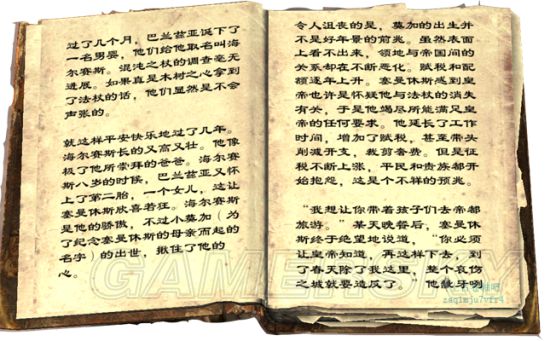 过了几个月，巴兰兹亚诞下了
一名男婴，他们给他取名叫海
尔赛斯。混沌之杖的调查毫无
进展。如果真是木树之心拿到
了法杖的话，他们显然是不会
声张的。
就这样平安快乐地过了几年。
海尔赛斯长的又高又壮。他像
极了他所崇拜的爸爸。海尔赛
斯八岁的时候，巴兰兹亚又怀
上了第二胎，一个女儿，这让
塞曼休斯欣喜若狂。海尔赛斯
是他的骄傲，不过小莫加（为
了纪念塞曼休斯的母亲而起的
名字）的出世，揪住了他的
心。
令人沮丧的是，莫加的出生并
不是好年景的前兆。虽然表面
上看不出来，领地与帝国间的
关系却在不断恶化。赋税和配
额逐年上升。塞曼休斯感到皇
帝也许是怀疑他与法杖的消失
有关，于是他竭尽所能满足皇
帝的任何要求。他延长了工作
时间，增加了赋税，甚至带头
削减开支，裁剪奢费。但是征
税不断上涨，平民和贵族都开
始抱怨，这是个不祥的预兆。
“我想让你带着孩子们去帝都
旅游。”某天晚餐后，塞曼休
斯终于绝望地说道，“你必须
让皇帝知道，再这样下去，到
了春天除了我这里，整个哀伤
之城就要造反了。”他龇牙咧
GAMERSKY
zaqimju7vfr4